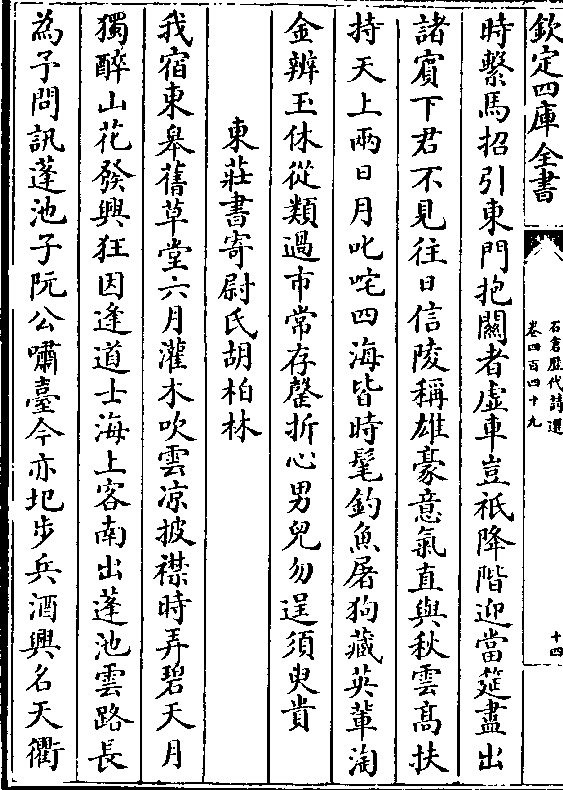 欽定四庫全書
石倉歷代詩選
卷四百四十九
十四
時繫馬招引東門抱關者虛車豈祇降階迎當筵盡出
諸賓下君不見往日信陵稱雄豪意氣直與秋雲髙扶
持天上兩日月叱咤四海皆時髦釣魚屠狗藏英軰淘
金辨玉休從𩔖過市常存罄折心男兒勿逞須臾貴
東莊書寄尉氏胡柏林
我宿東皋舊草堂六月灌木吹雲凉披襟時弄碧天月
獨醉山花發興狂因逢道士海上客南出蓬池雲路長
為予問訊蓬池子阮公嘯臺今亦圮步兵酒興名天衢